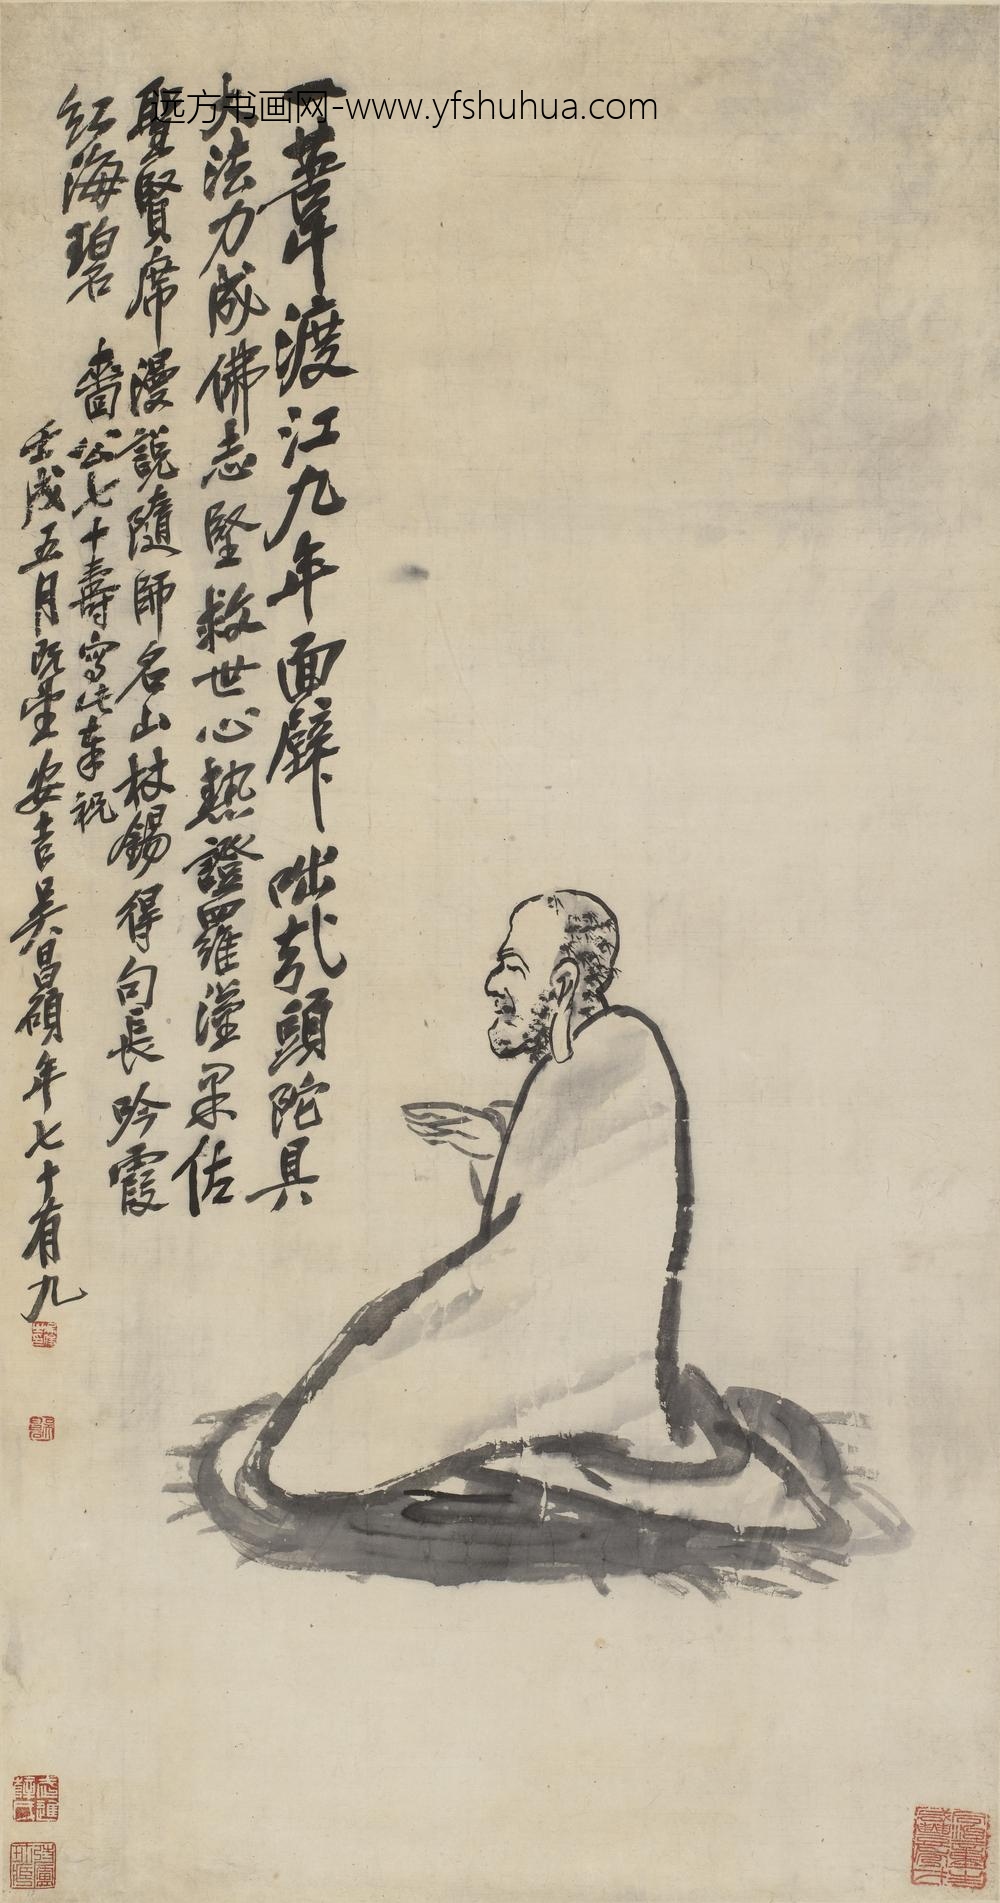 一葦渡江九年面壁咄哉頭陀具
大法力成佛志堅救世心熱證羅漢果佔
聖賢席漫說隨師名山杖錫得句長吟霞
紅海碧
嗇公七十壽寫此奉祝
壬戌五月既望安吉吳昌碩年七十有九
远方书画网-www.yfshuhua.com